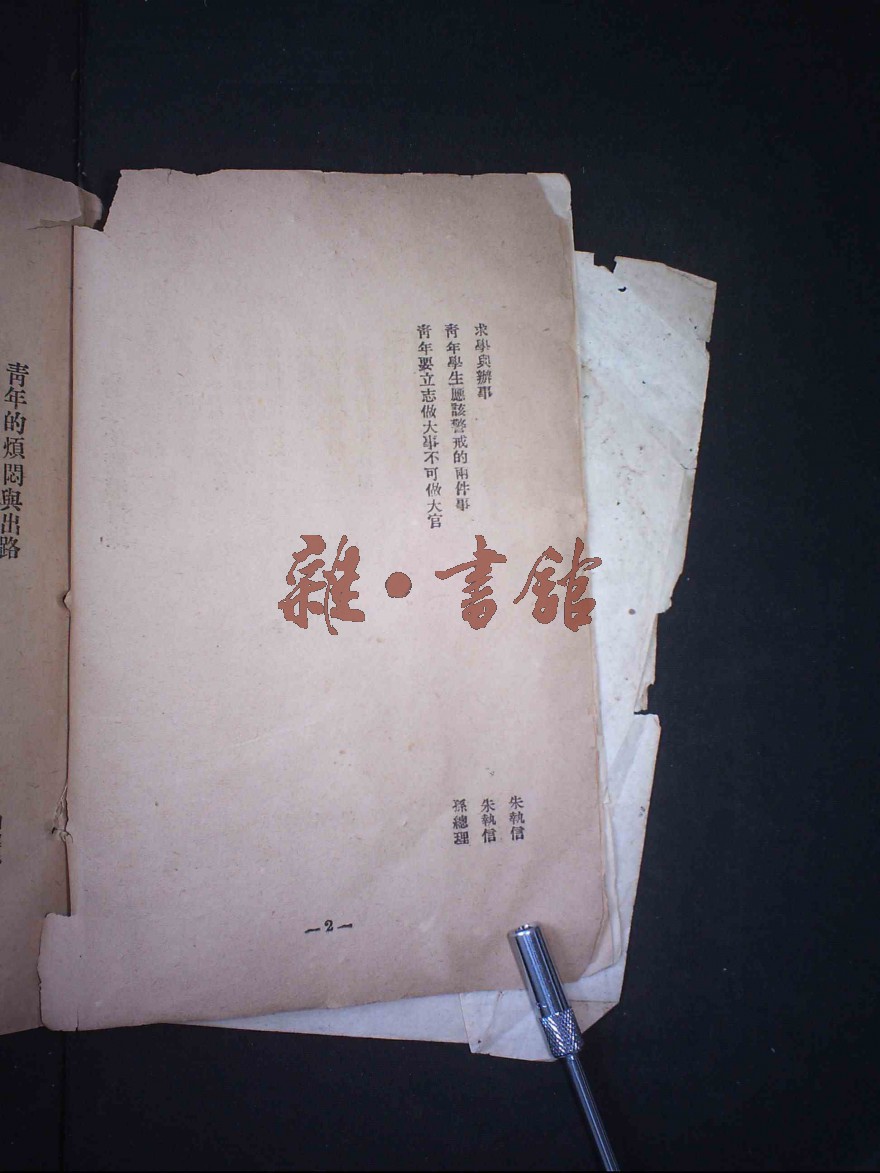 求學與辦事　朱執信
青年學生應該警戒的兩件事　朱執信
青年要立志做大事不可做大官　孫總理
—2—
青年的煩悶與出路
雜·書館